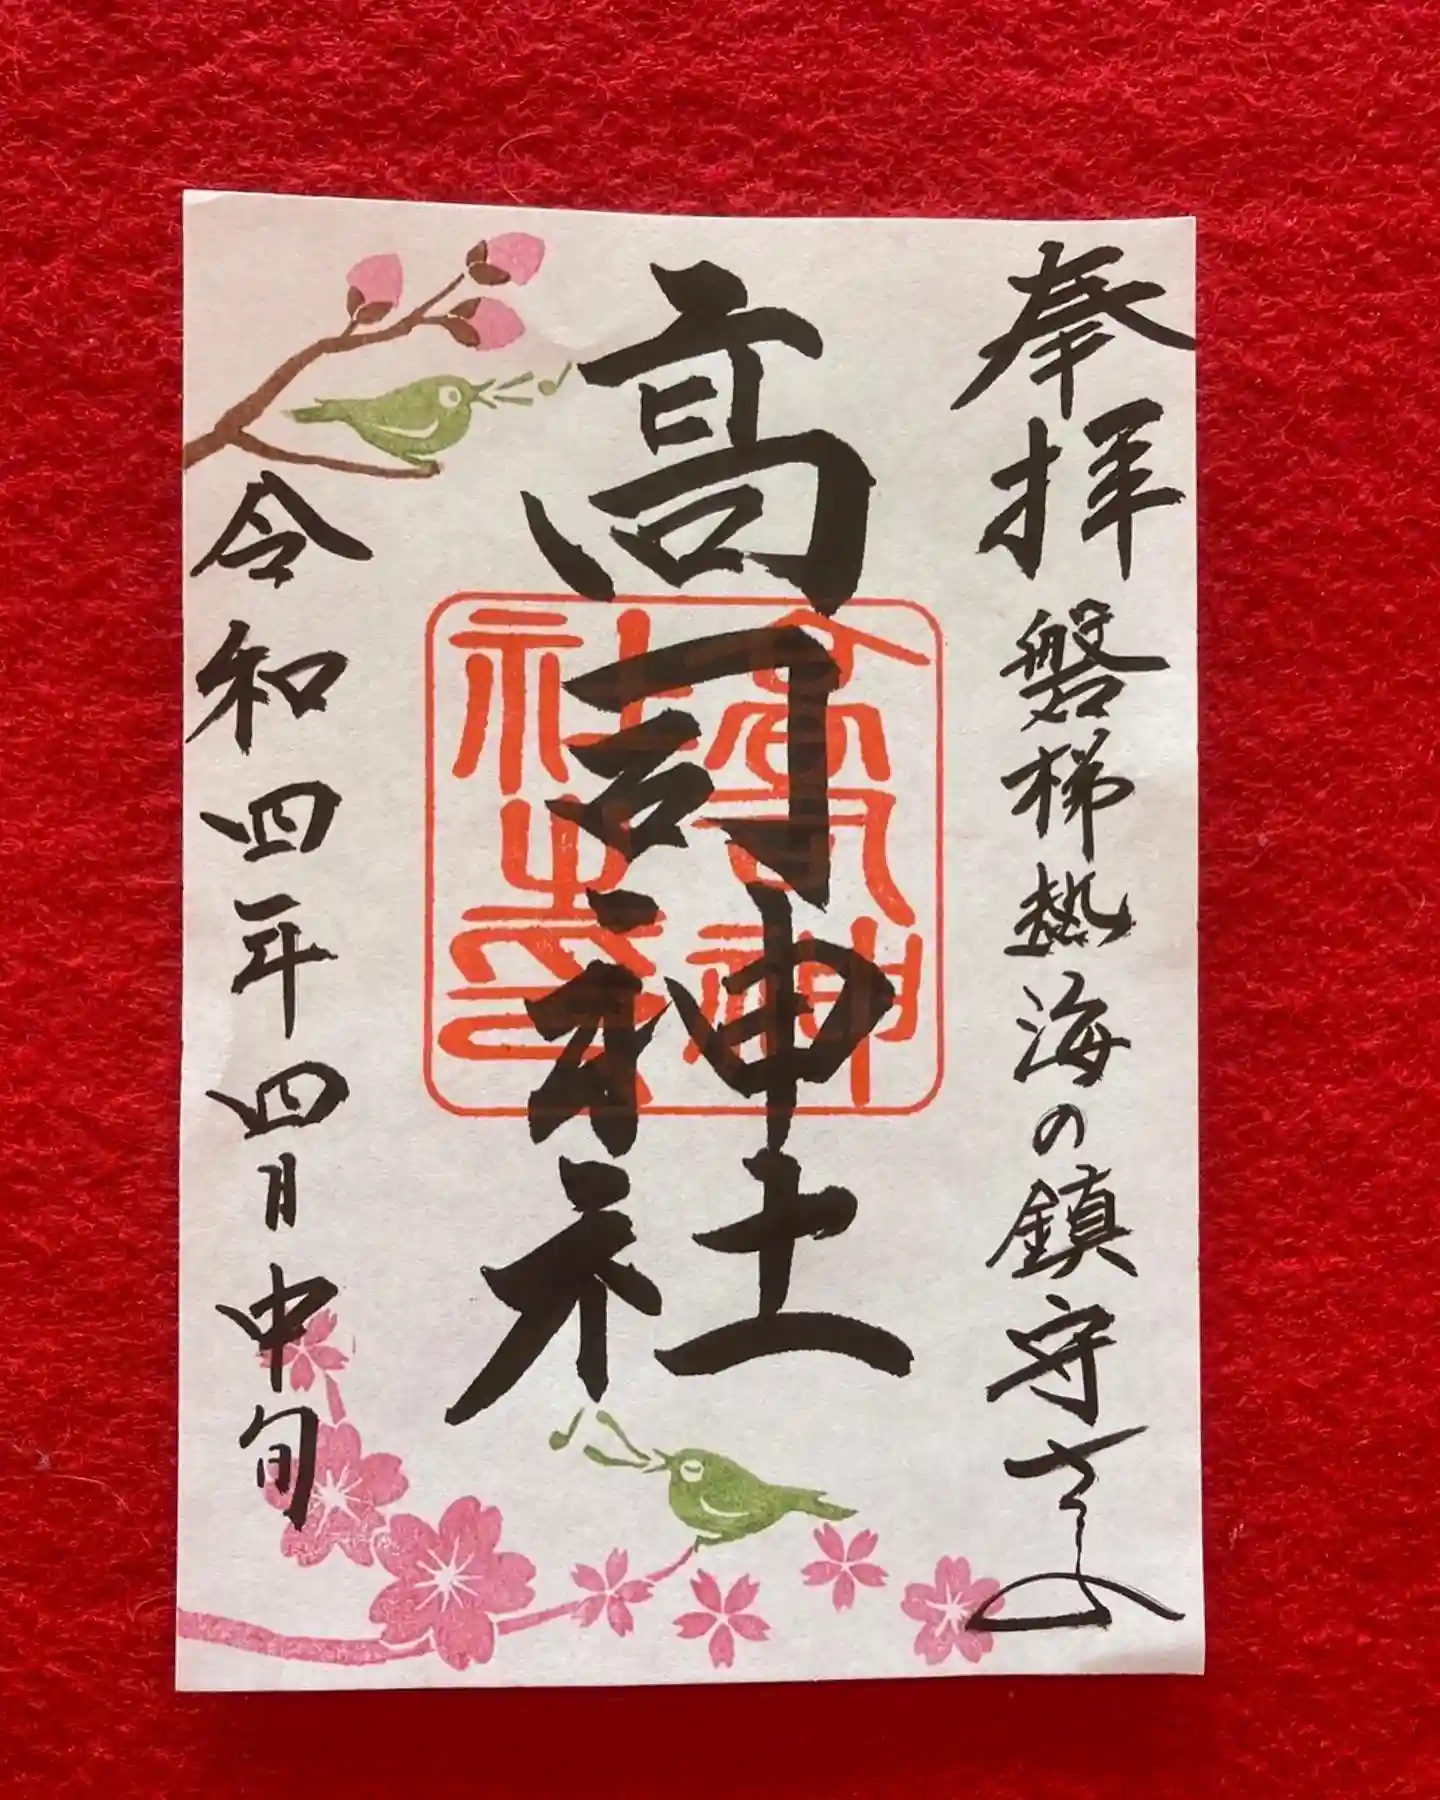 奉拝 磐梯熱海の鎮守
高司神社
令和四年四月中旬
高司神
社之印